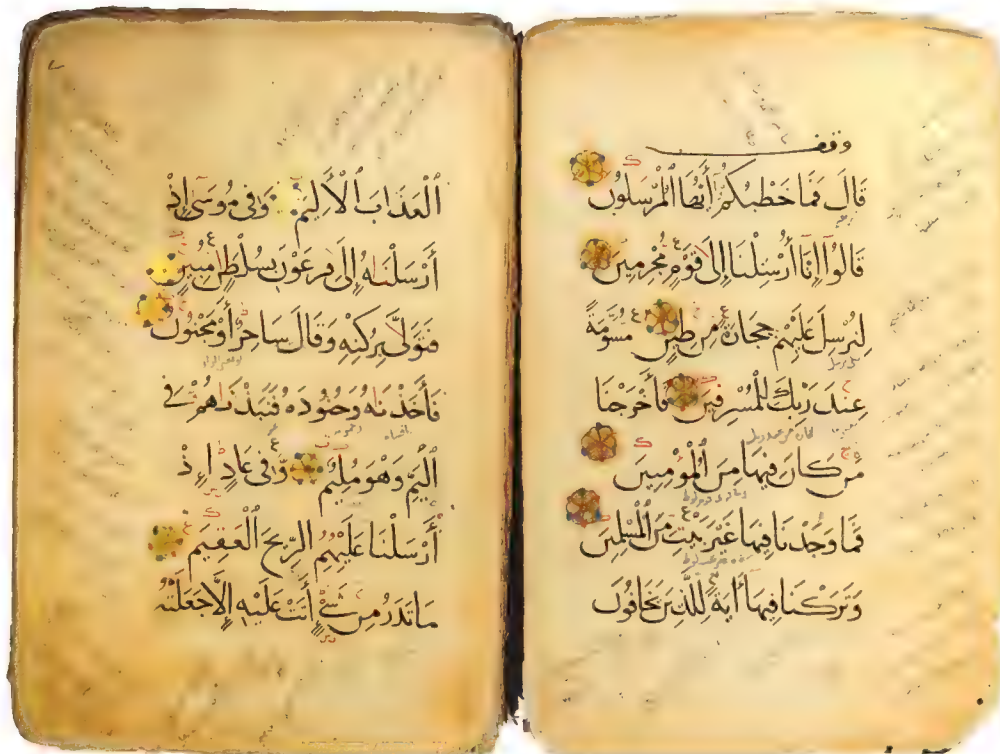 وقف
قَالَ فَمَا خَطْبُكُمْ أَيُّهَا ٱلْمُرْسَلُونَ
قَالُوٓا۟ إِنَّآ أُرْسِلْنَآ إِلَىٰ قَوْمٍ مُجْرِمِينَ
لِنُرْسِلَ عَلَيْهِمْ حِجَارَةً مِن طِينٍ مُسَوَّمَةً
عِندَ رَبِّكَ لِلْمُسْرِفِينَ فَأَخْرَجْنَا
مَن كَانَ فِيهَا مِنَ ٱلْمُؤْمِنِينَ
فَمَا وَجَدْنَا فِيهَا غَيْرَ بَيْتٍ مِنَ ٱلْمُسْلِمِينَ
وَتَرَكْنَا فِيهَا ءَايَةً لِلَّذِينَ يَخَافُونَ
ٱلْعَذَابَ ٱلْأَلِيمَ وَفِى مُوسَىٰٓ إِذْ
أَرْسَلْنَاهُ إِلَىٰ فِرْعَوْنَ بِسُلْطَانٍ مُبِينٍ
فَتَوَلَّىٰ بِرُكْنِهِ وَقَالَ سَاحِرٌ أَوْ مَجْنُونٌ
فَأَخَذْنَاهُ وَجُنُودَهُ فَنَبَذْنَاهُمْ فِى
ٱلْيَمِّ وَهُوَ مُلِيمٌ وَفِى عَادٍ إِذْ
أَرْسَلْنَا عَلَيْهِمُ ٱلرِّيحَ ٱلْعَقِيمَ
مَا تَذَرُ مِن شَىْءٍ أَتَتْ عَلَيْهِ إِلَّا جَعَلَتْهُ